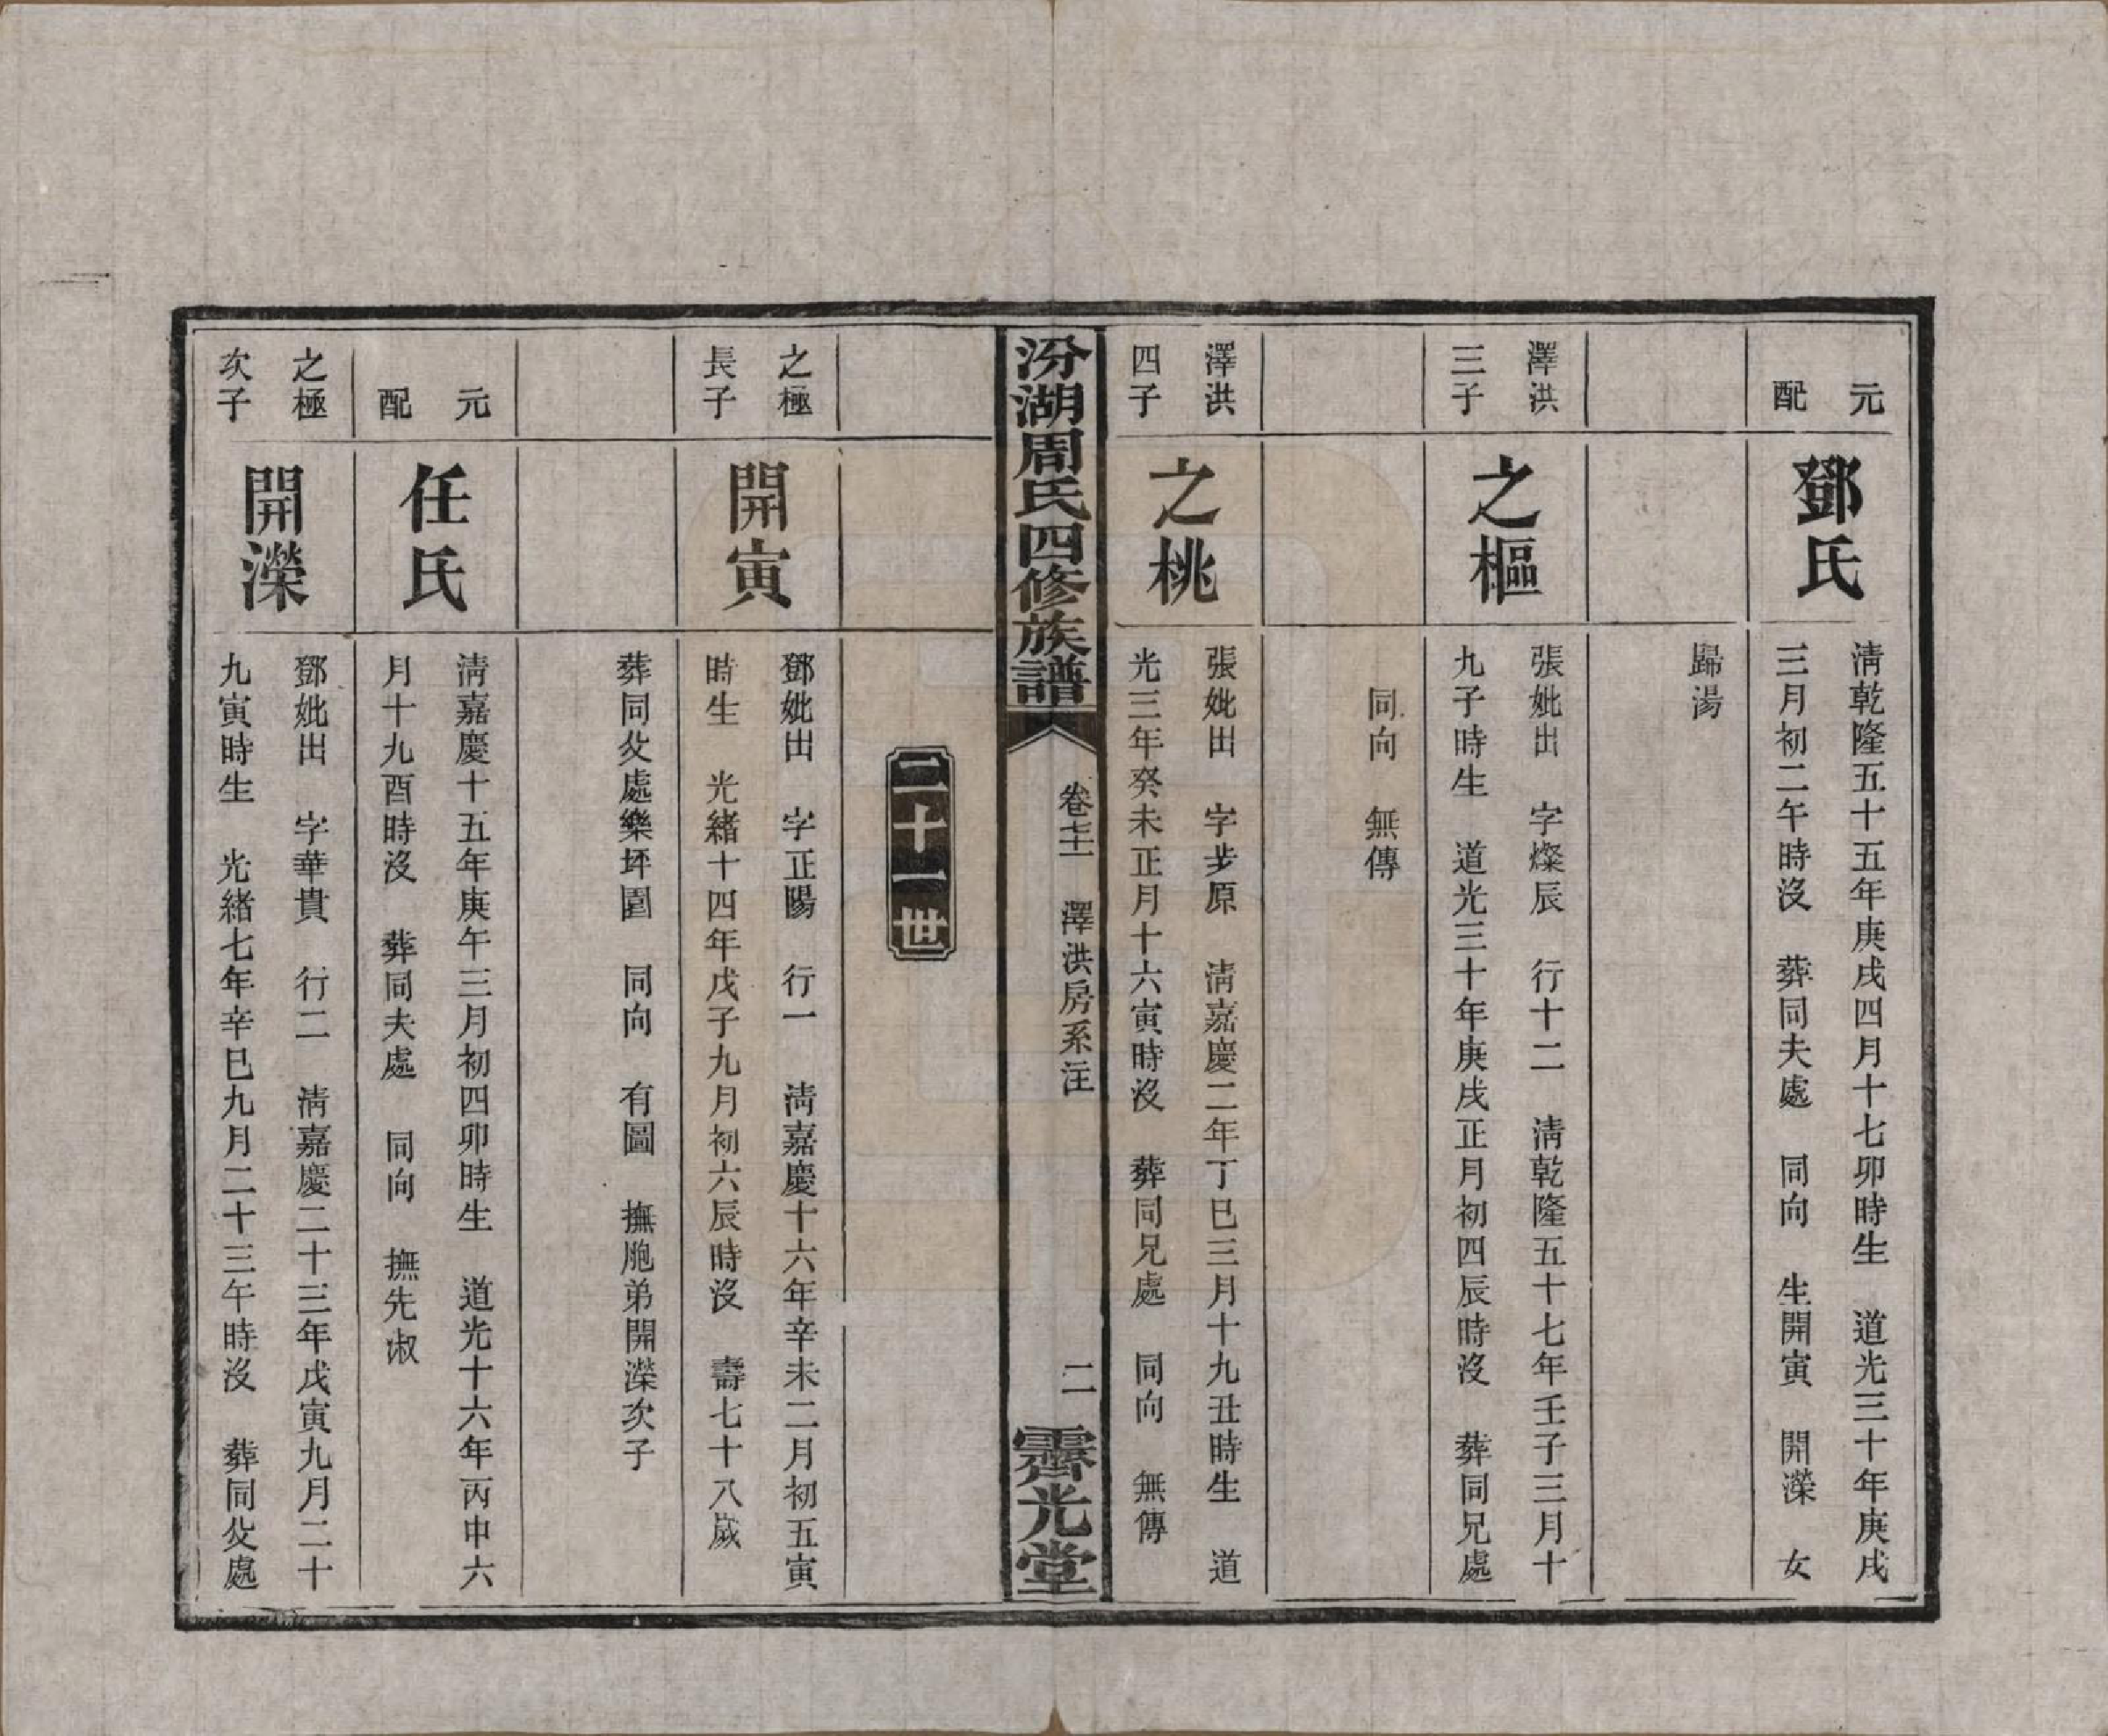 元配
鄧氏
淸乾隆五十五年庚戌四月十七卯時生　道光三十年庚戌
三月初二午時沒　葬同夫處　同向　生開寅　開濚　女
歸湯
澤洪
三子
之樞
張妣出　字燦辰　行十二　淸乾隆五十七年壬子三月十
九子時生　道光三十年庚戌正月初四辰時沒　葬同兄處
同向　無傳
澤洪
四子
之桃
張妣出　字步原　淸嘉慶二年丁巳三月十九丑時生　道
光三年癸未正月十六寅時沒　葬同兄處　同向　無傳
汾湖周氏四修族譜
卷七十一　澤洪房系注
二
霽光堂
二十一世
之極
長子
開寅
鄧妣出　字正陽　行一　淸嘉慶十六年辛未二月初五寅
時生　光緒十四年戊子九月初六辰時沒　壽七十八歲
葬同父處樂坪園　同向　有圖　撫胞弟開濚次子
元配
任氏
淸嘉慶十五年庚午三月初四卯時生　道光十六年丙申六
月十九酉時沒　葬同夫處　同向　撫先淑
之極
次子
開濚
鄧妣出　字華貴　行二　淸嘉慶二十三年戊寅九月二十
九寅時生　光緒七年辛巳九月二十三午時沒　葬同父處